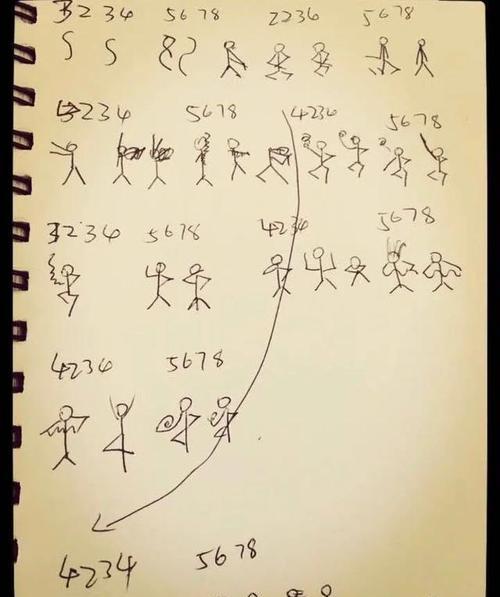 3 2 3 4 5 6 7 8 2 2 3 4 5 6 7 8
3 2 3 4 5 6 7 8 4 2 3 4 5 6 7 8
3 2 3 4 5 6 7 8 4 2 3 4 5 6 7 8
4 2 3 4 5 6 7 8
4 2 3 4 5 6 7 8